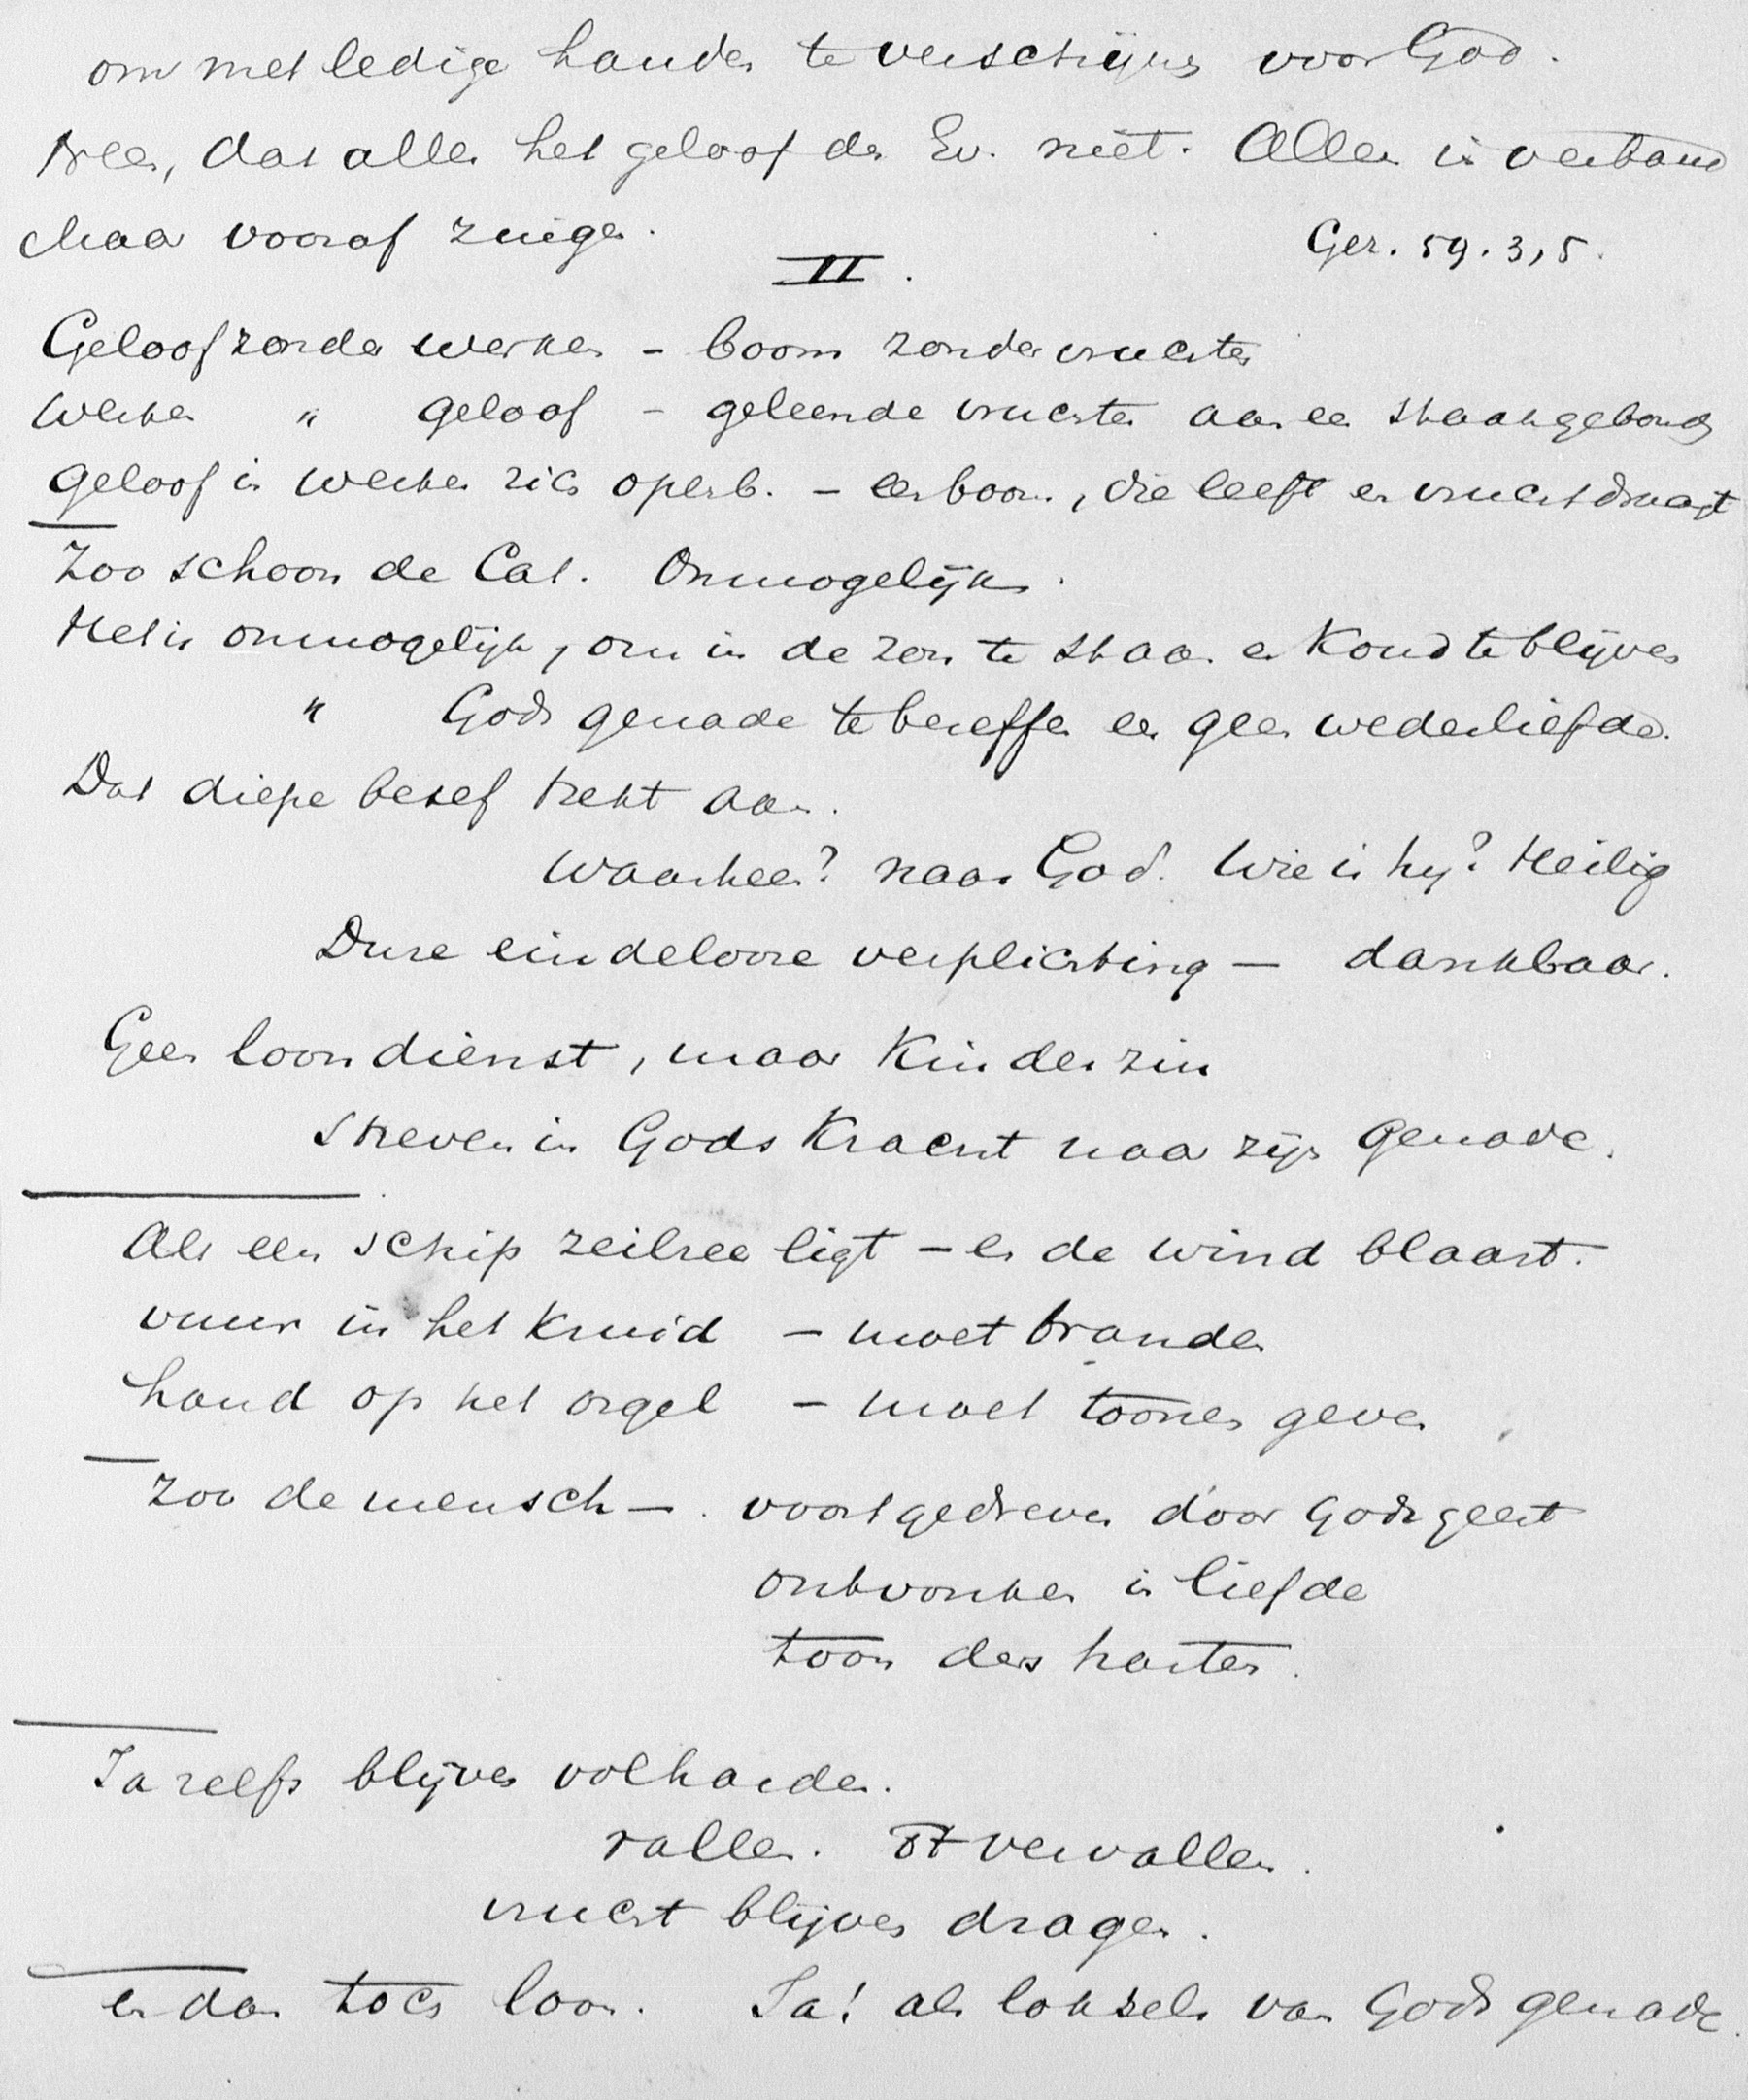 om met ledige handen te verschijnen voor God.
Neen, dat alles het geloof der Ev. niet. Alles in verband
Maar vooraf zingen. Gez. 59. 3, 5.
II.
Geloof zonder werken - boom zonder vruchten
Werken " geloof - geleende vruchten aan een staak gebonden
geloof in werken zich openb. - een boom, die leeft en vrucht draagt
Zoo schoon de Cat. Onmogelijk.
Het is onmogelijk, om in de zon te staan en koud te blijven
" Gods genade te beseffen en geen wederliefde.
Dat diepe besef trekt aan.
Waarheen? naar God. Wie is hij? Heilig
Dure eindelooze verplichting — dankbaar.
Geen loondienst, maar Kinderzin
Streven in Gods Kracht naar zijn genade.
Als een schip zeilree ligt - en de wind blaast.
vuur in het kruid - moet branden
hand op het orgel - moet toonen geven
Zoo de mensch - voortgedreven door Gods geest
ontvonken in liefde
toon des harten.
Ja zelfs blijven volharden.
vallen. of vervallen.
vrucht blijven dragen.
en dan toch loon. Ja! als loksels van Gods genade.